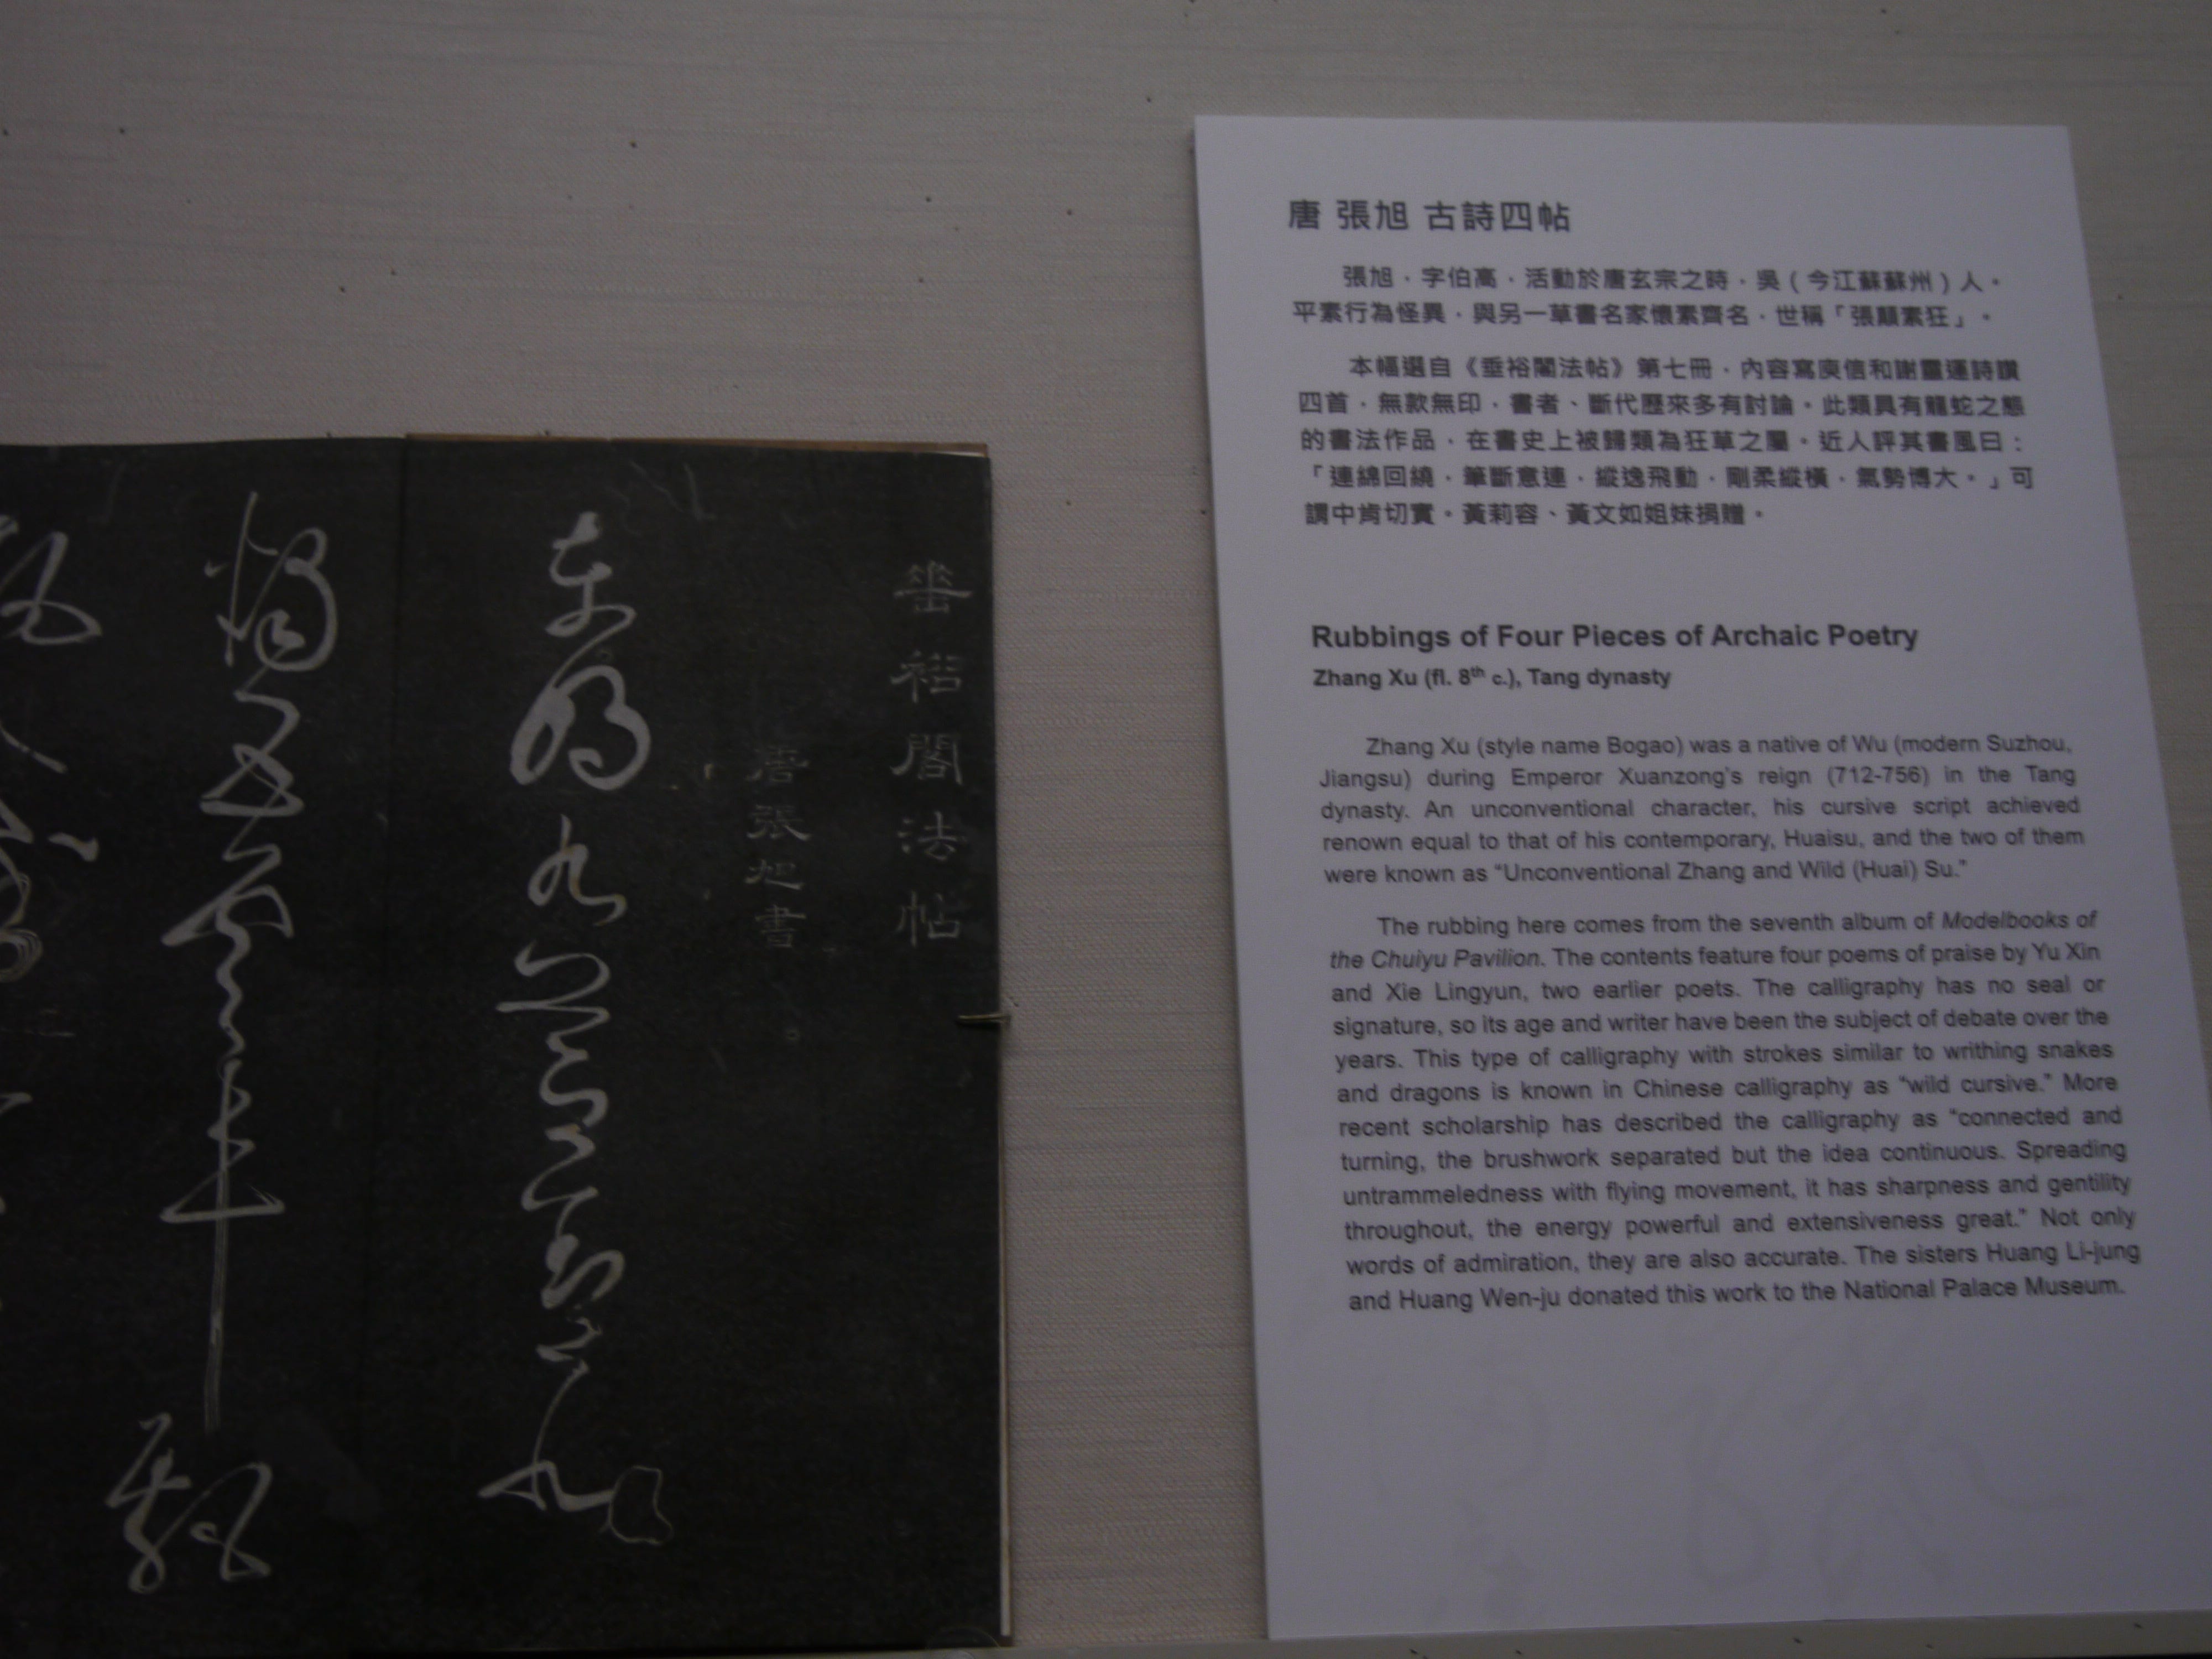 垂裕閣法帖
唐張旭書
東明九芝蓋北
燭五雲車飄
唐 張旭 古詩四帖
張旭，字伯高，活動於唐玄宗之時，吳（今江蘇蘇州）人。
平素行為怪異，與另一草書名家懷素齊名，世稱「張顛素狂」。
本幅選自《垂裕閣法帖》第七冊，內容寫庾信和謝靈運詩讚
四首，無款無印，書者、斷代歷來多有討論。此類具有龍蛇之態
的書法作品，在書史上被歸類為狂草之屬。近人評其書風曰：
「連綿回繞，筆斷意連，縱逸飛動，剛柔縱橫，氣勢博大。」可
謂中肯切實。黃莉容、黃文如姐妹捐贈。
Rubbings of Four Pieces of Archaic Poetry
Zhang Xu (fl. 8th c.), Tang dynasty
Zhang Xu (style name Bogao) was a native of Wu (modern Suzhou,
Jiangsu) during Emperor Xuanzong's reign (712-756) in the Tang
dynasty. An unconventional character, his cursive script achieved
renown equal to that of his contemporary, Huaisu, and the two of them
were known as “Unconventional Zhang and Wild (Huai) Su.”
The rubbing here comes from the seventh album of Modelbooks of
the Chuiyu Pavilion. The contents feature four poems of praise by Yu Xin
and Xie Lingyun, two earlier poets. The calligraphy has no seal or
signature, so its age and writer have been the subject of debate over the
years. This type of calligraphy with strokes similar to writhing snakes
and dragons is known in Chinese calligraphy as “wild cursive.” More
recent scholarship has described the calligraphy as “connected and
turning, the brushwork separated but the idea continuous. Spreading
untrammeledness with flying movement, it has sharpness and gentility
throughout, the energy powerful and extensiveness great.” Not only
words of admiration, they are also accurate. The sisters Huang Li-jung
and Huang Wen-ju donated this work to the National Palace Museum.